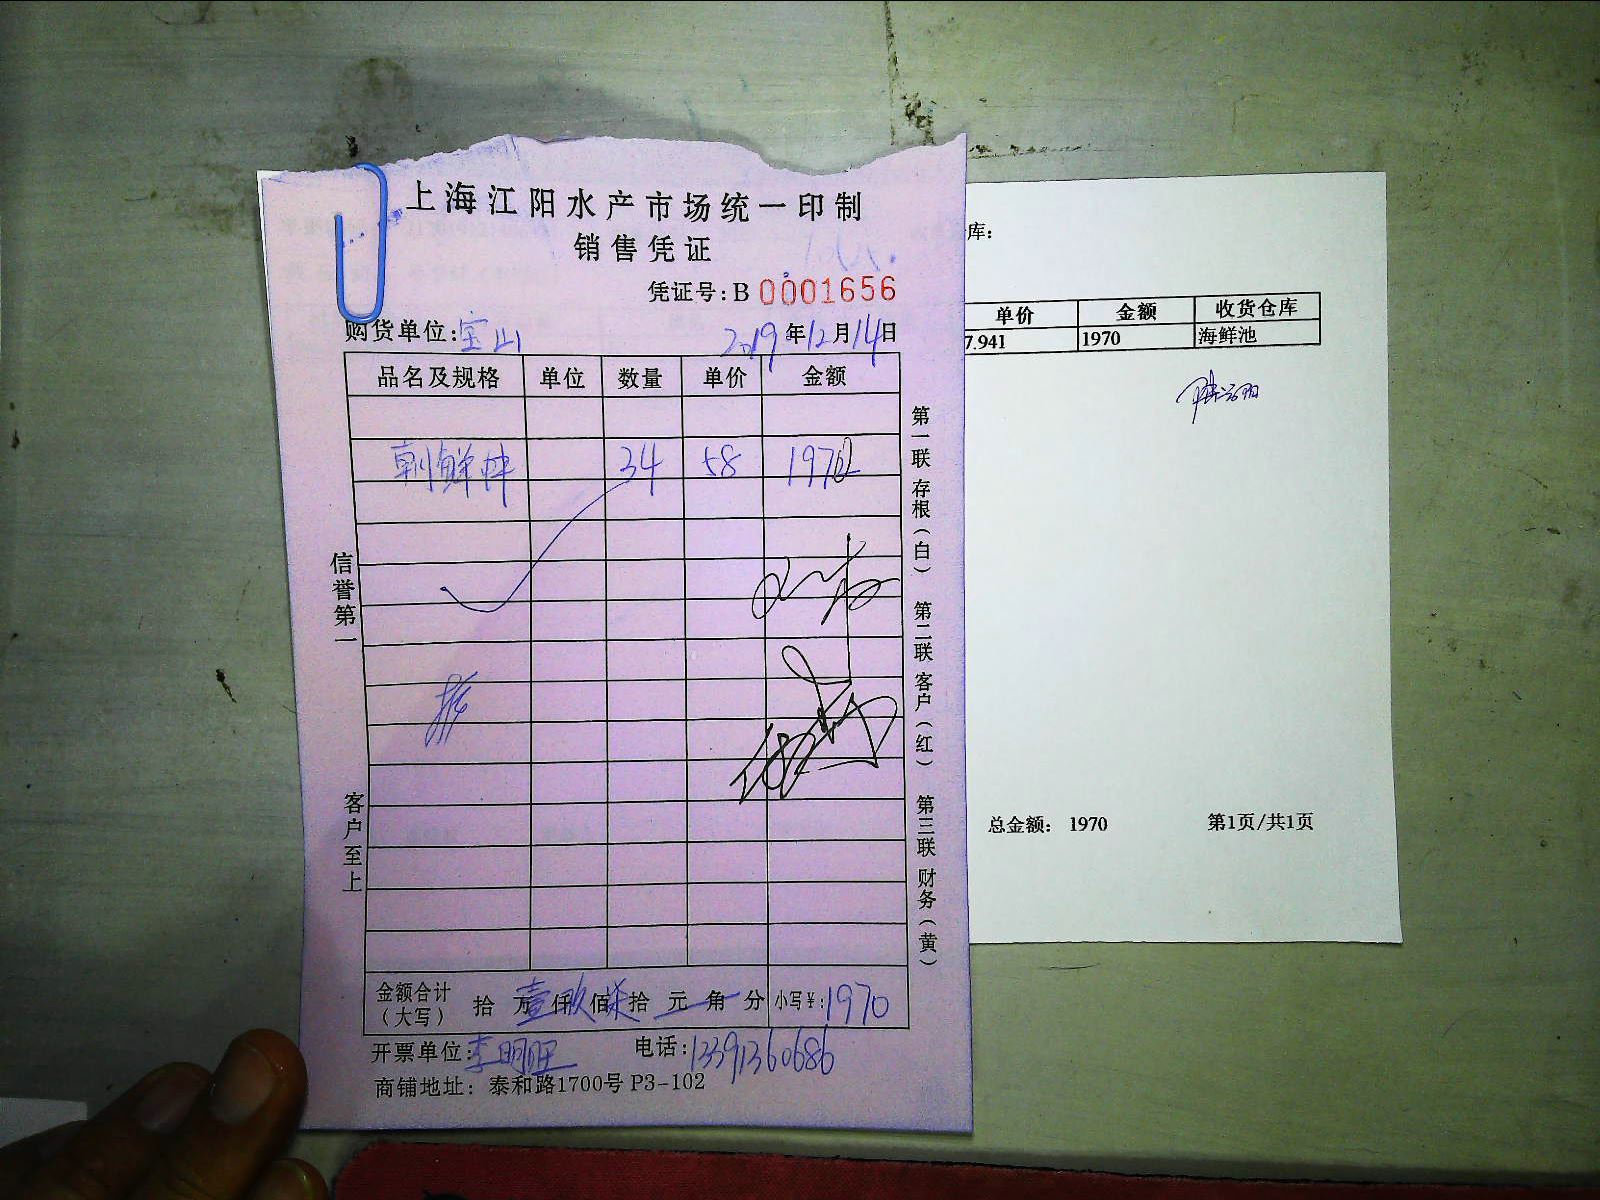 上海江阳水产市场统一印制
销售凭证
凭证号:B 0001656
购货单位:宝山 2019年12月14日
品名及规格 单位 数量 单价 金额
朝鲜蚌 34 58 1970
信誉第一
客户至上
第一联 存根(白) 第二联 客户(红) 第三联 财务(黄)
金额合计(大写) 拾 万壹仟玖佰柒拾 元 角 分 小写¥:1970
开票单位:李明旺 电话:13391360686
商铺地址: 泰和路1700号 P3-102
库:
单价 金额 收货仓库
7.941 1970 海鲜池
总金额: 1970 第1页/共1页